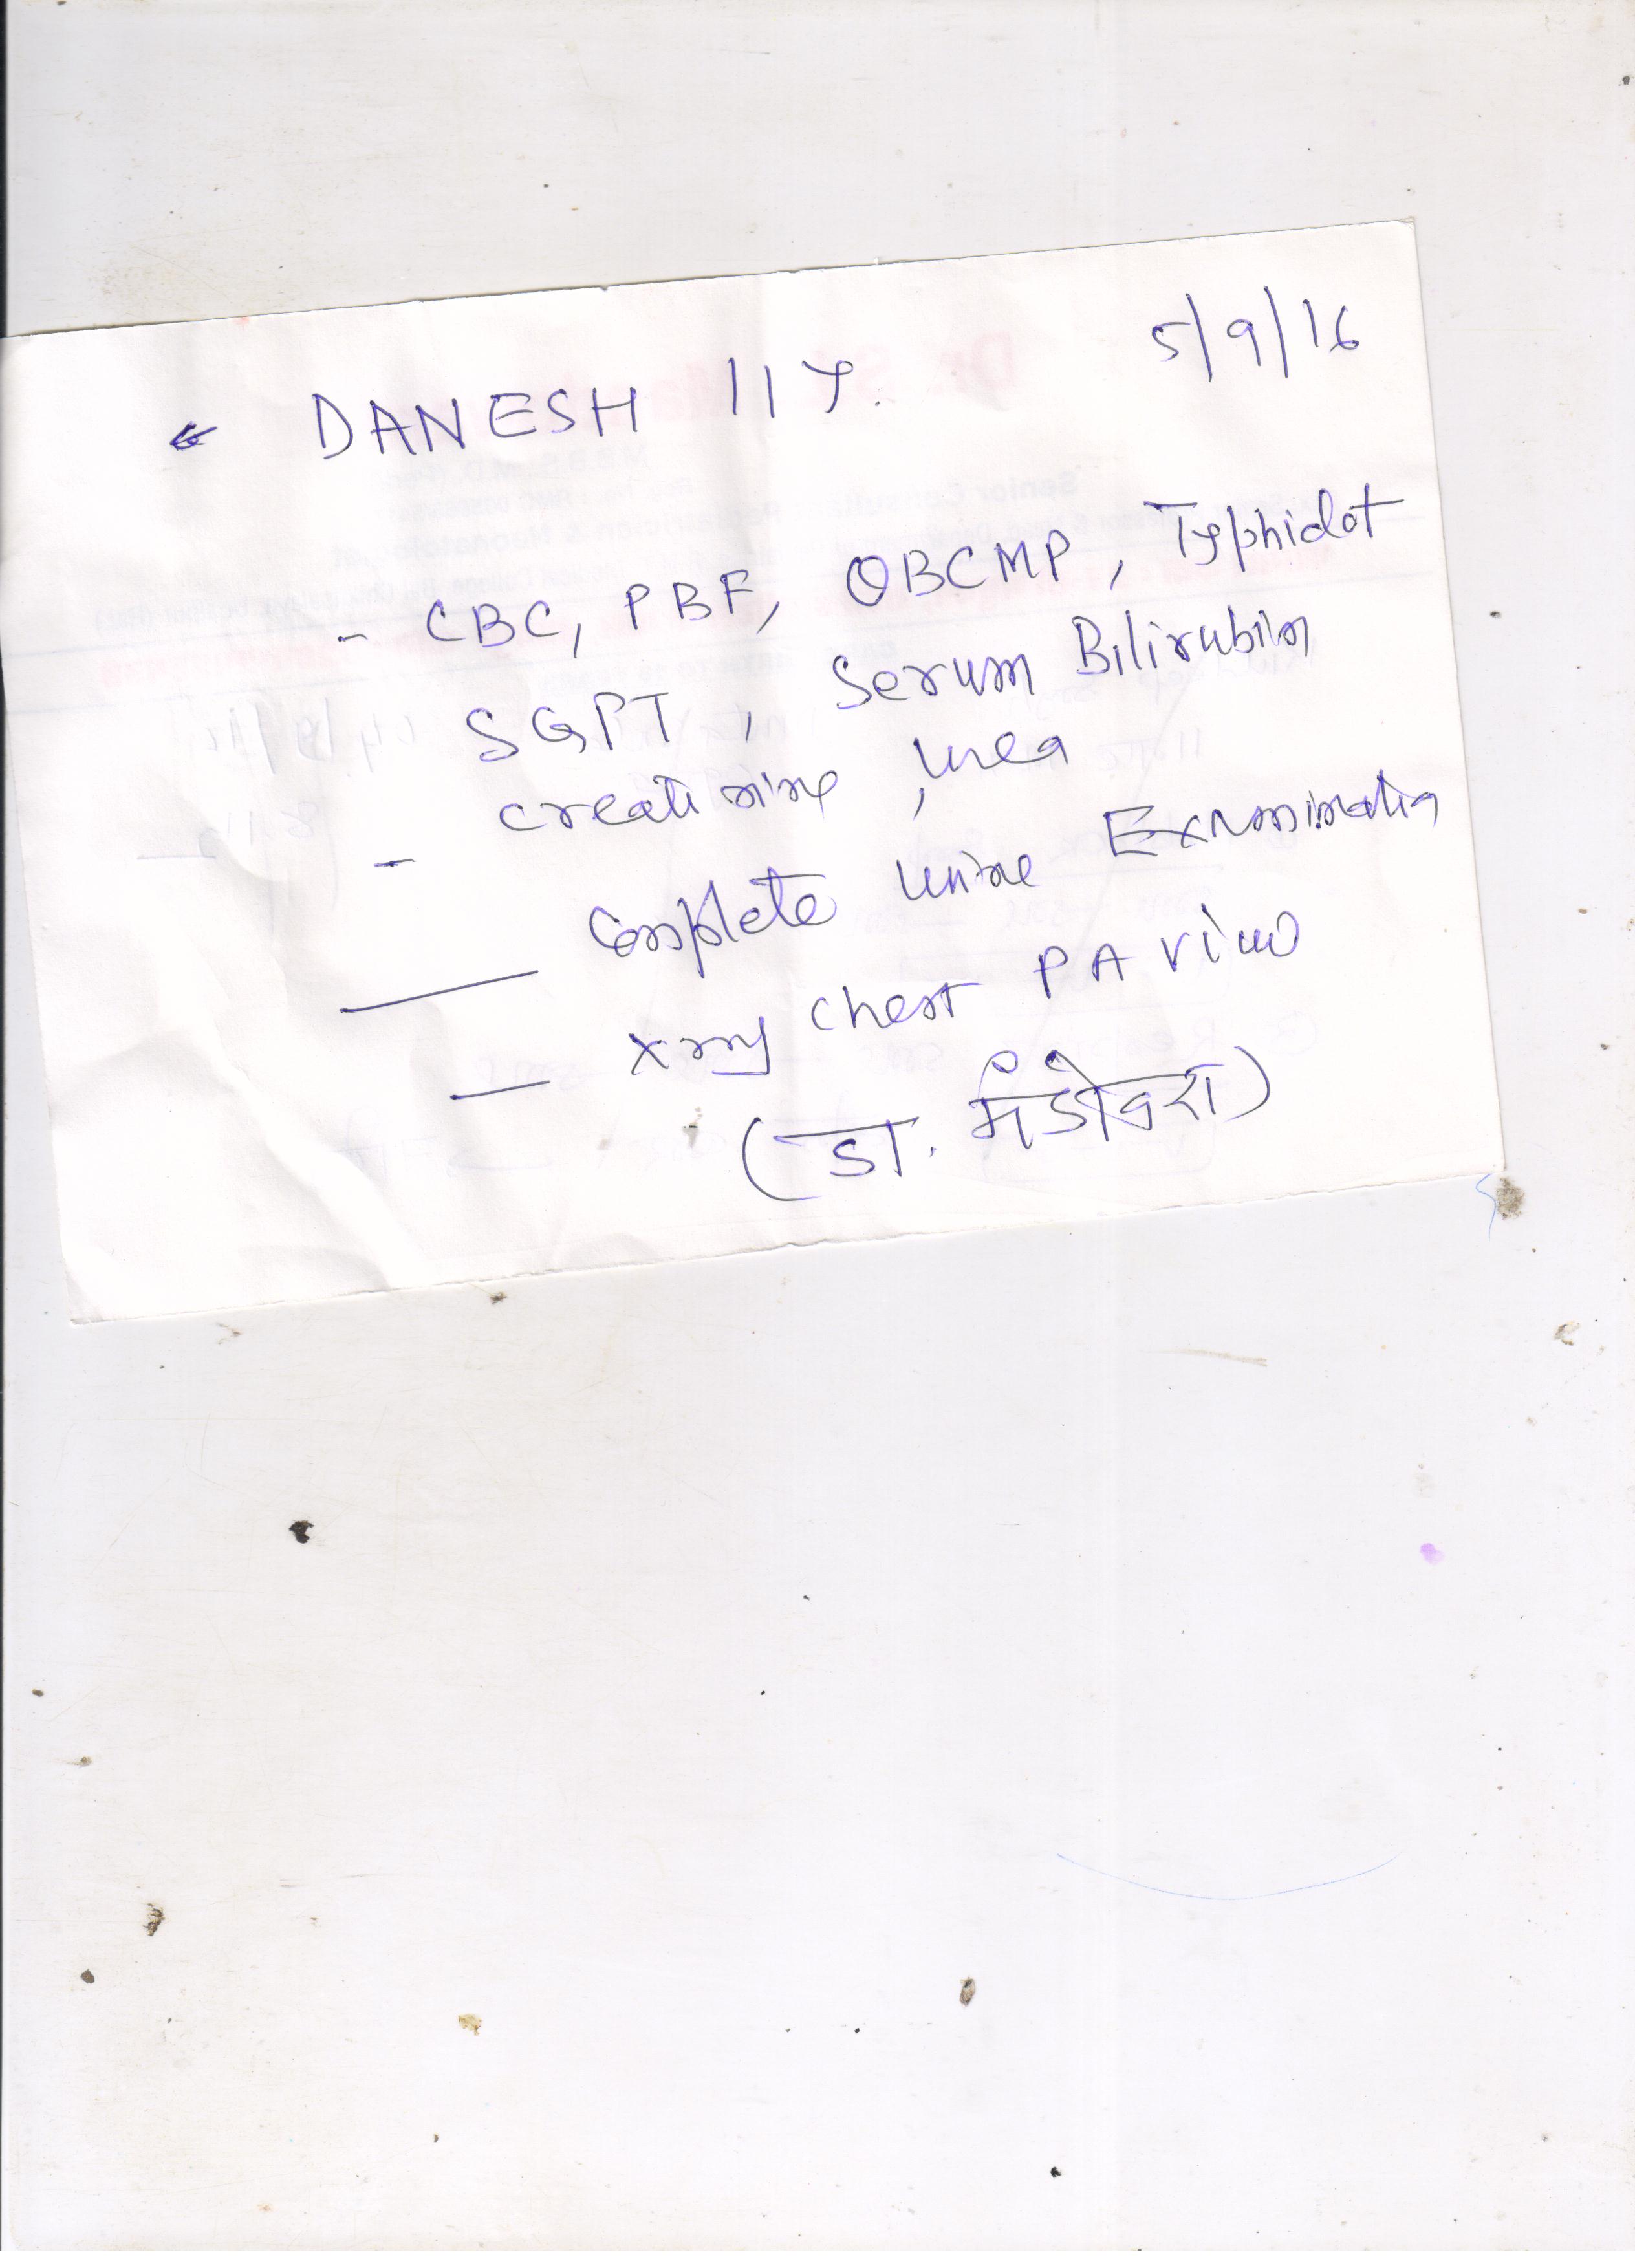 5/9/16
← DANESH 11Y.
- CBC, PBF, QBCMP, Typhidot
SGPT, Serum Bilirubin
- creatinine, urea
— Complete urine Examination
— xray chest PA view
(डा. मंडोवरा)